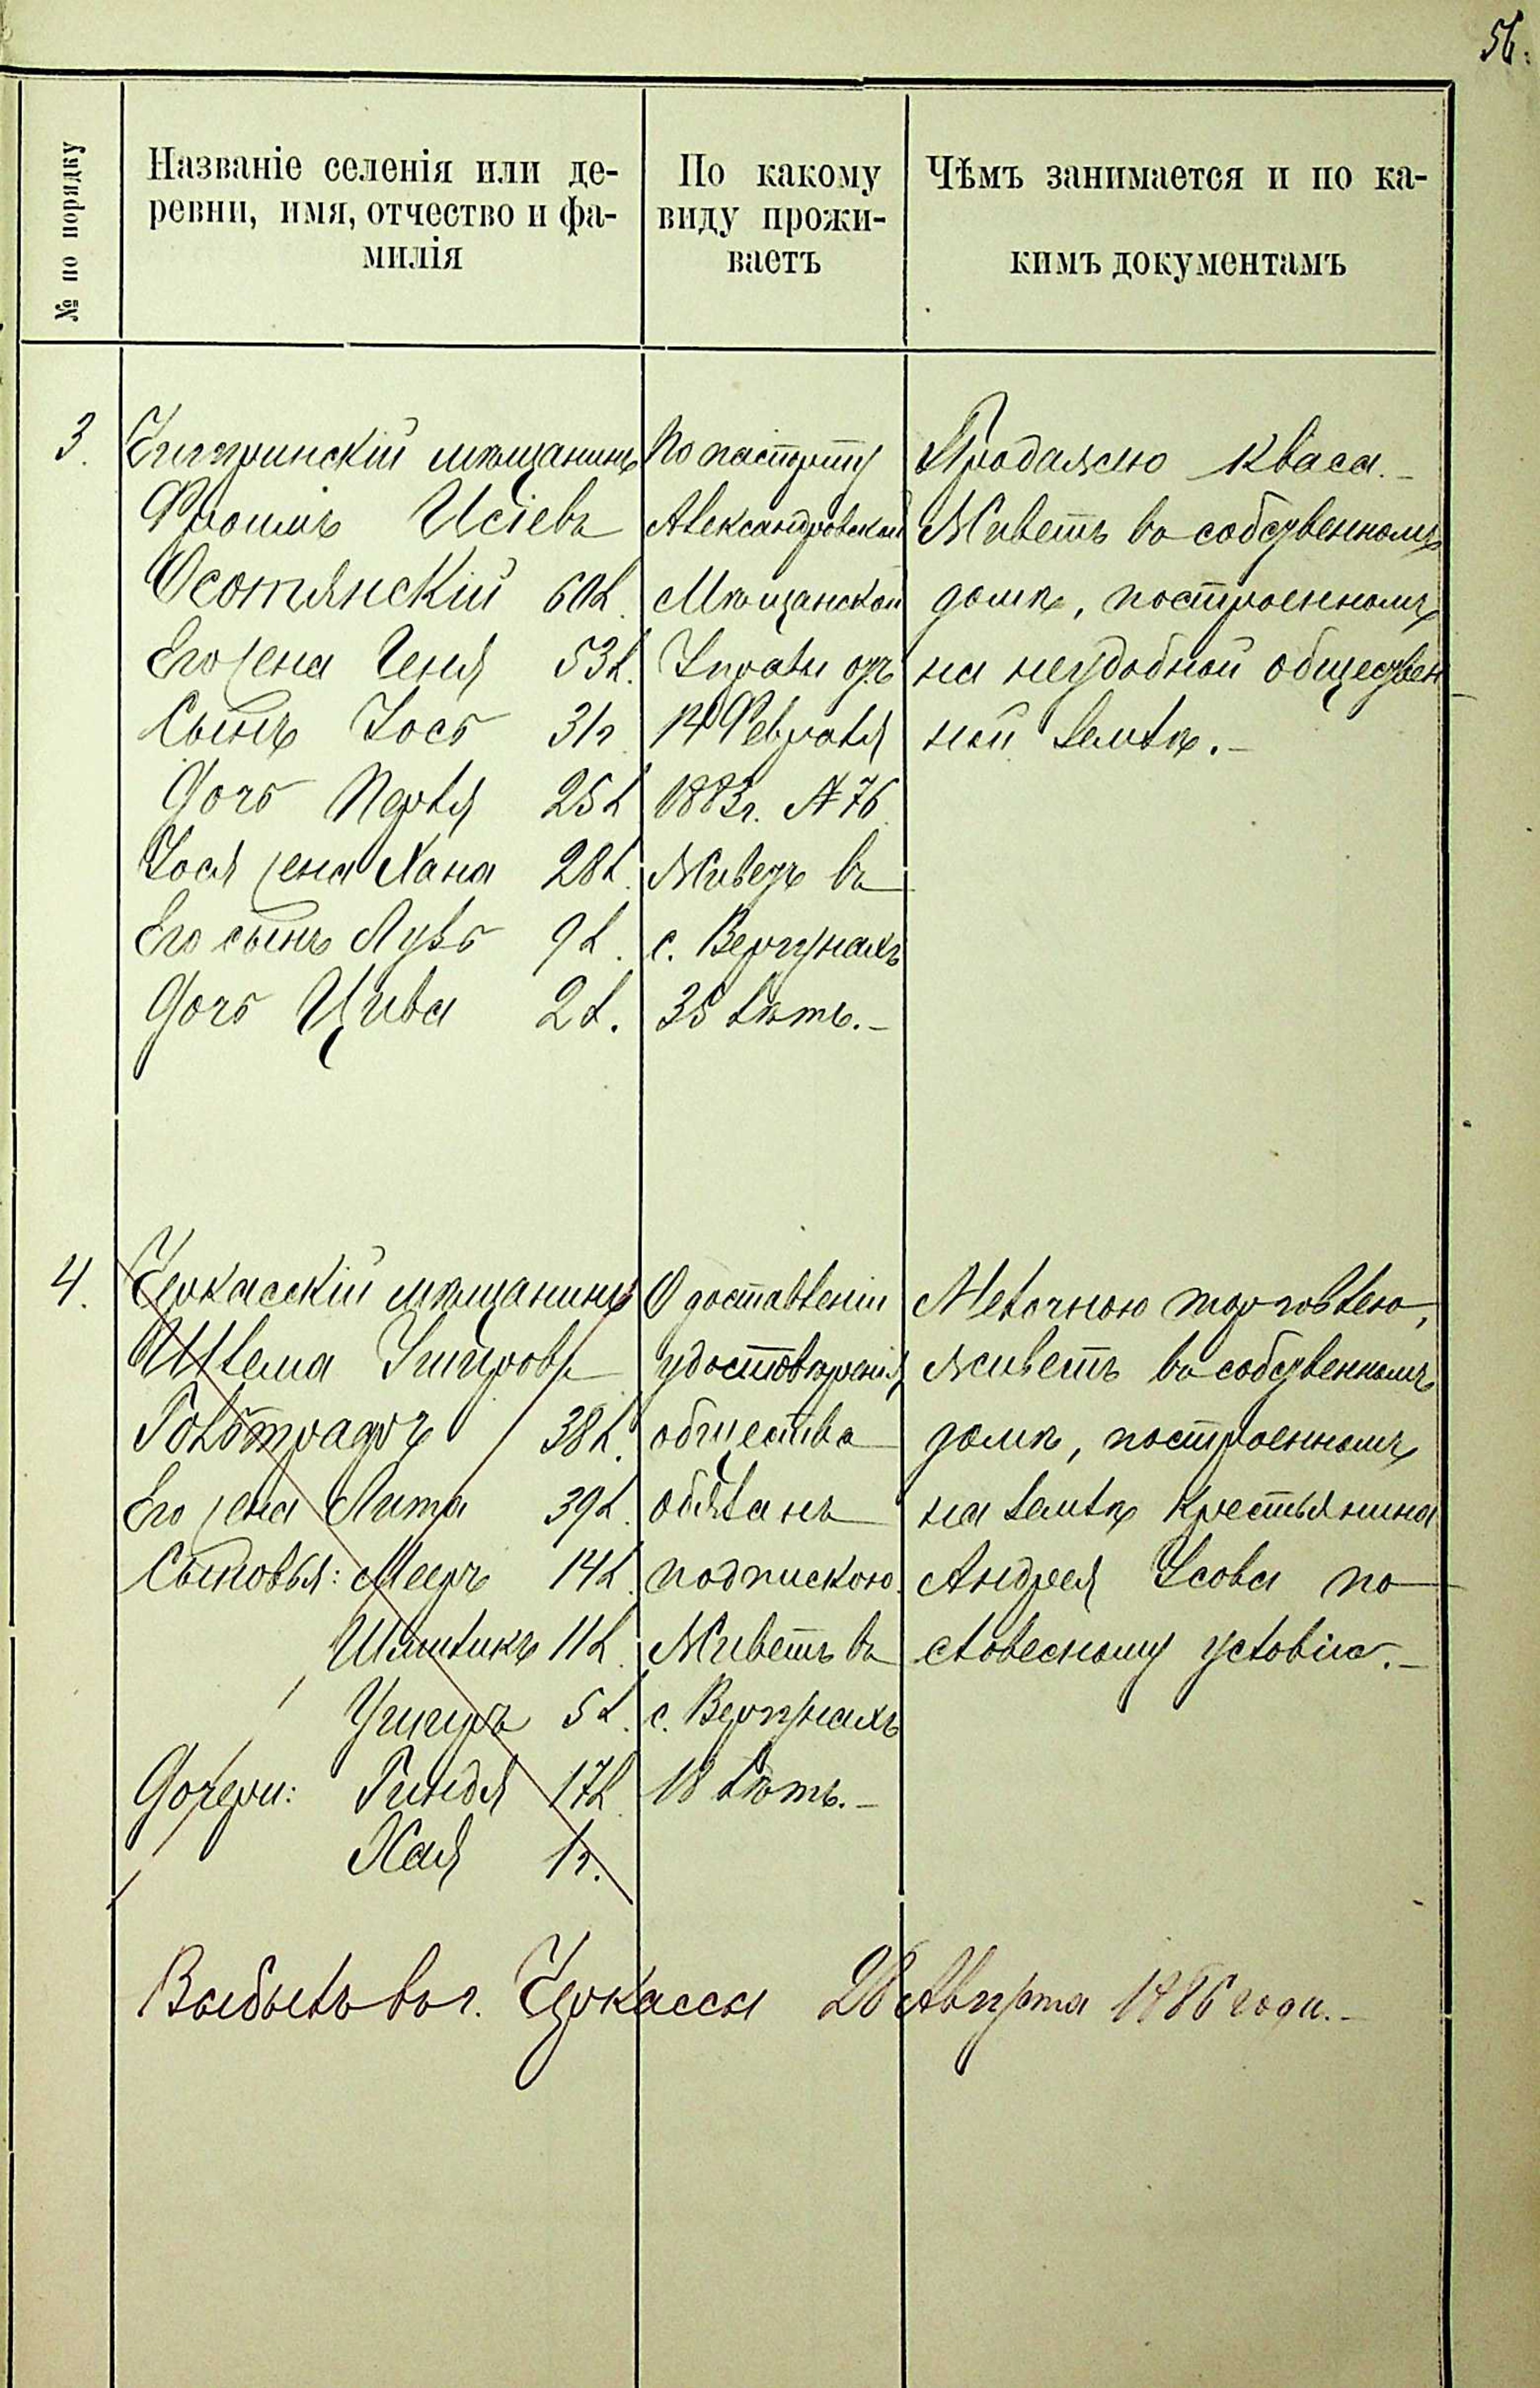 56.
№ по порядку
Названіе селенія или де-
ревни, имя, отчество и фа-
милія
По какому
виду прожи-
ваетъ
Чѣмъ занимается и по ка-
кимъ документамъ
3.
Чигиринскій мѣщанинъ
Фроимъ Исіевъ
Осотянскій 60 л.
Его жена Геня 53 л.
Сынъ Іось 31 г.
Дочь Перля 25 л.
Іося жена Хана 28 л.
Его сынъ Лузь 9 л.
Дочь Цива 2 л.
По паспорту
Александровской
Мѣщанской
Управы отъ
14 Февраля
1883 г. № 76.
Живетъ въ
с. Вергунахъ
35 лѣтъ.-
Продажею кваса.-
Живетъ въ собственномъ
домѣ, построенномъ
на неудобной обществен-
ной землѣ.-
4.
Черкасскій мѣщанинъ
Шлема Ушеровъ
Гольтрадтъ 38 л.
Его жена Лита 39 л.
Сыновья: Мееръ 14 л.
Шмиликъ 11 л.
Ушеръ 5 л.
Дочери: Гиндя 17 л.
Хая 1 г.
О доставленіи
удостовѣренія
общества
обязанъ
подпискою.
Живетъ въ
с. Вергунахъ
18 лѣтъ.-
Мелочною торговлею,
живетъ въ собственномъ
домѣ, построенномъ
на землѣ крестьянина
Андрея Усова по
словесному условію.-
Выбылъ въ г. Черкассы 28 Августа 1886 года.-